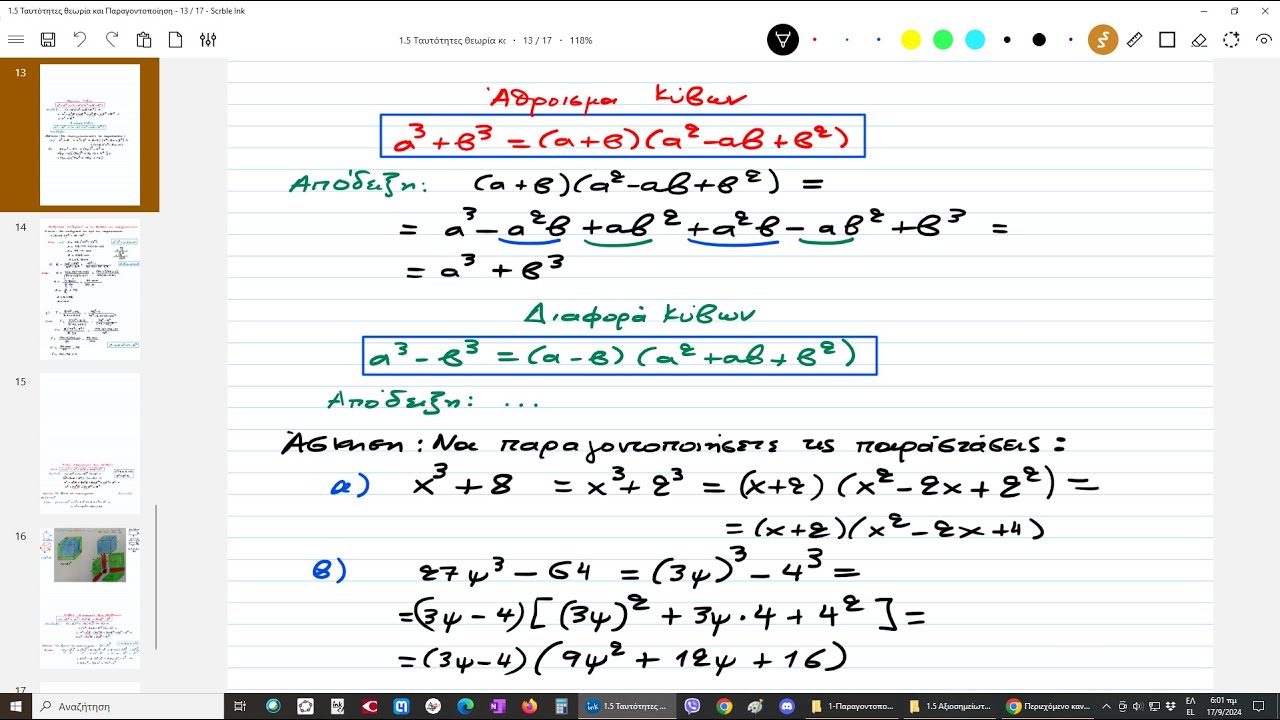 1.5 Ταυτότητες θεωρία και Παραγοντοποίηση - 13 / 17 - Scrble Ink
1.5 Ταυτότητες θεωρία κα • 13 / 17 • 118%
13
14
15
16
17
Άθροισμα Κύβων
α³+β³ = (α+β)(α²-αβ+β²)
Απόδειξη: (α+β)(α²-αβ+β²) =
= α³ - α²β + αβ² + α²β - αβ² + β³ =
= α³ + β³
Διαφορά Κύβων
α³ - β³ = (α-β) (α²+αβ+β²)
Απόδειξη: ...
Άσκηση : Να παραγοντοποιήσετε τις παραστάσεις :
α) x³+8 = x³+2³ = (x+2) (x²-2x+2²) =
= (x+2)(x²-2x+4)
β) 27ψ³ - 64 = (3ψ)³ - 4³ =
= (3ψ - 4) [ (3ψ)² + 3ψ · 4 + 4² ] =
= (3ψ-4) (9ψ² + 12ψ + 16)
Αναζήτηση
1.5 Ταυτότητες ...
1-Παραγοντοπο...
1.5 Αξιοσημείωτ...
Περιεχόμενο καν...
ΕΛ
EL
6:01 πμ
17/9/2024